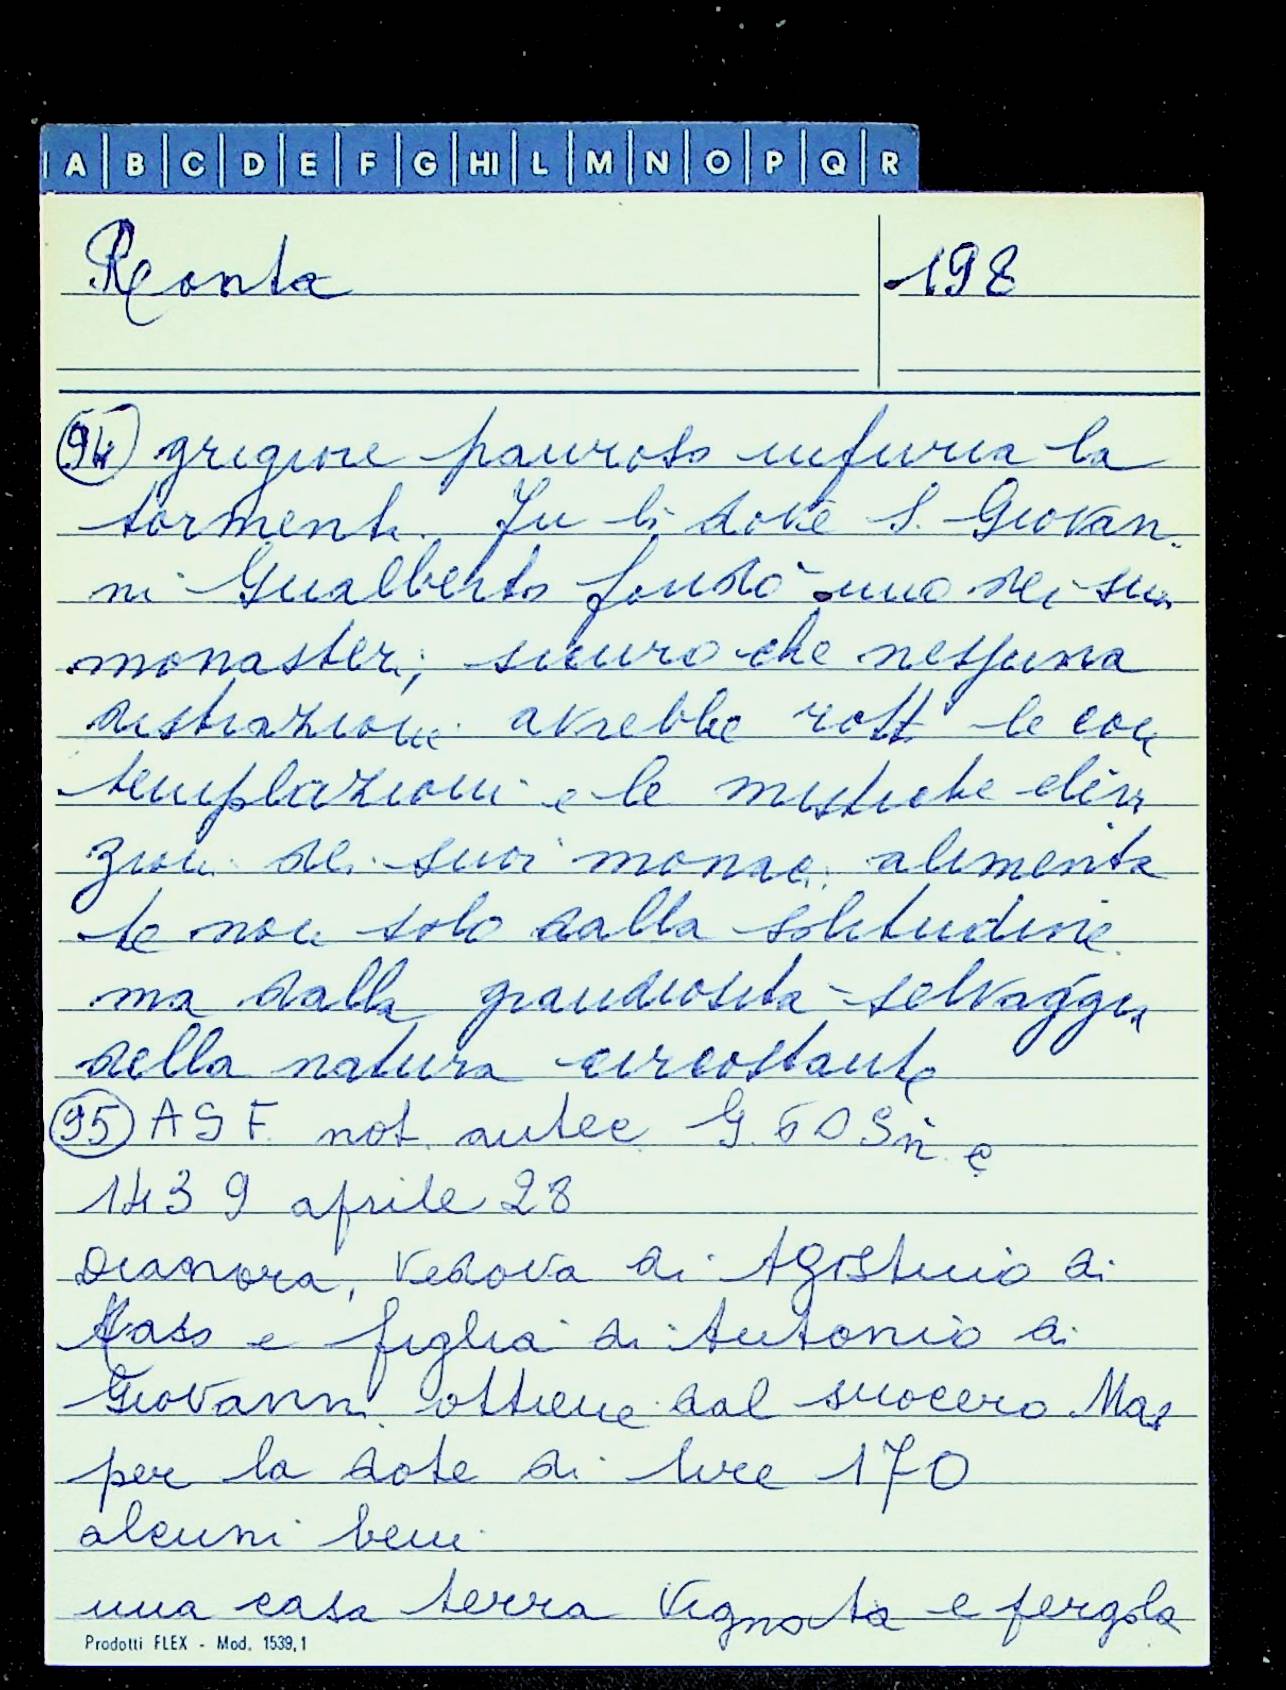 A B C D E F G HI L M N O P Q R
Reonta
198
94 grigiore pauroso infuria la
tormenta. Fu lì dove S. Giovan-
ni Gualberto fondò uno dei suoi
monasteri, sicuro che nessuna
distrazione avrebbe rott le con
templazioni e le mistiche
zioni dei suoi monaci alimenta
te non solo dalla solitudine
ma dalla grandiosità selvaggia
della natura circostante
95 ASF. not. antec G. 6
1439 aprile 28
Dianora, vedova di Agostino di
Maso e figlia di Antonio di
Giovanni ottiene dal suocero Mas
per la dote di lire 170
alcuni beni
una casa terra vignata e pergola
Prodotti FLEX - Mod. 1539,1